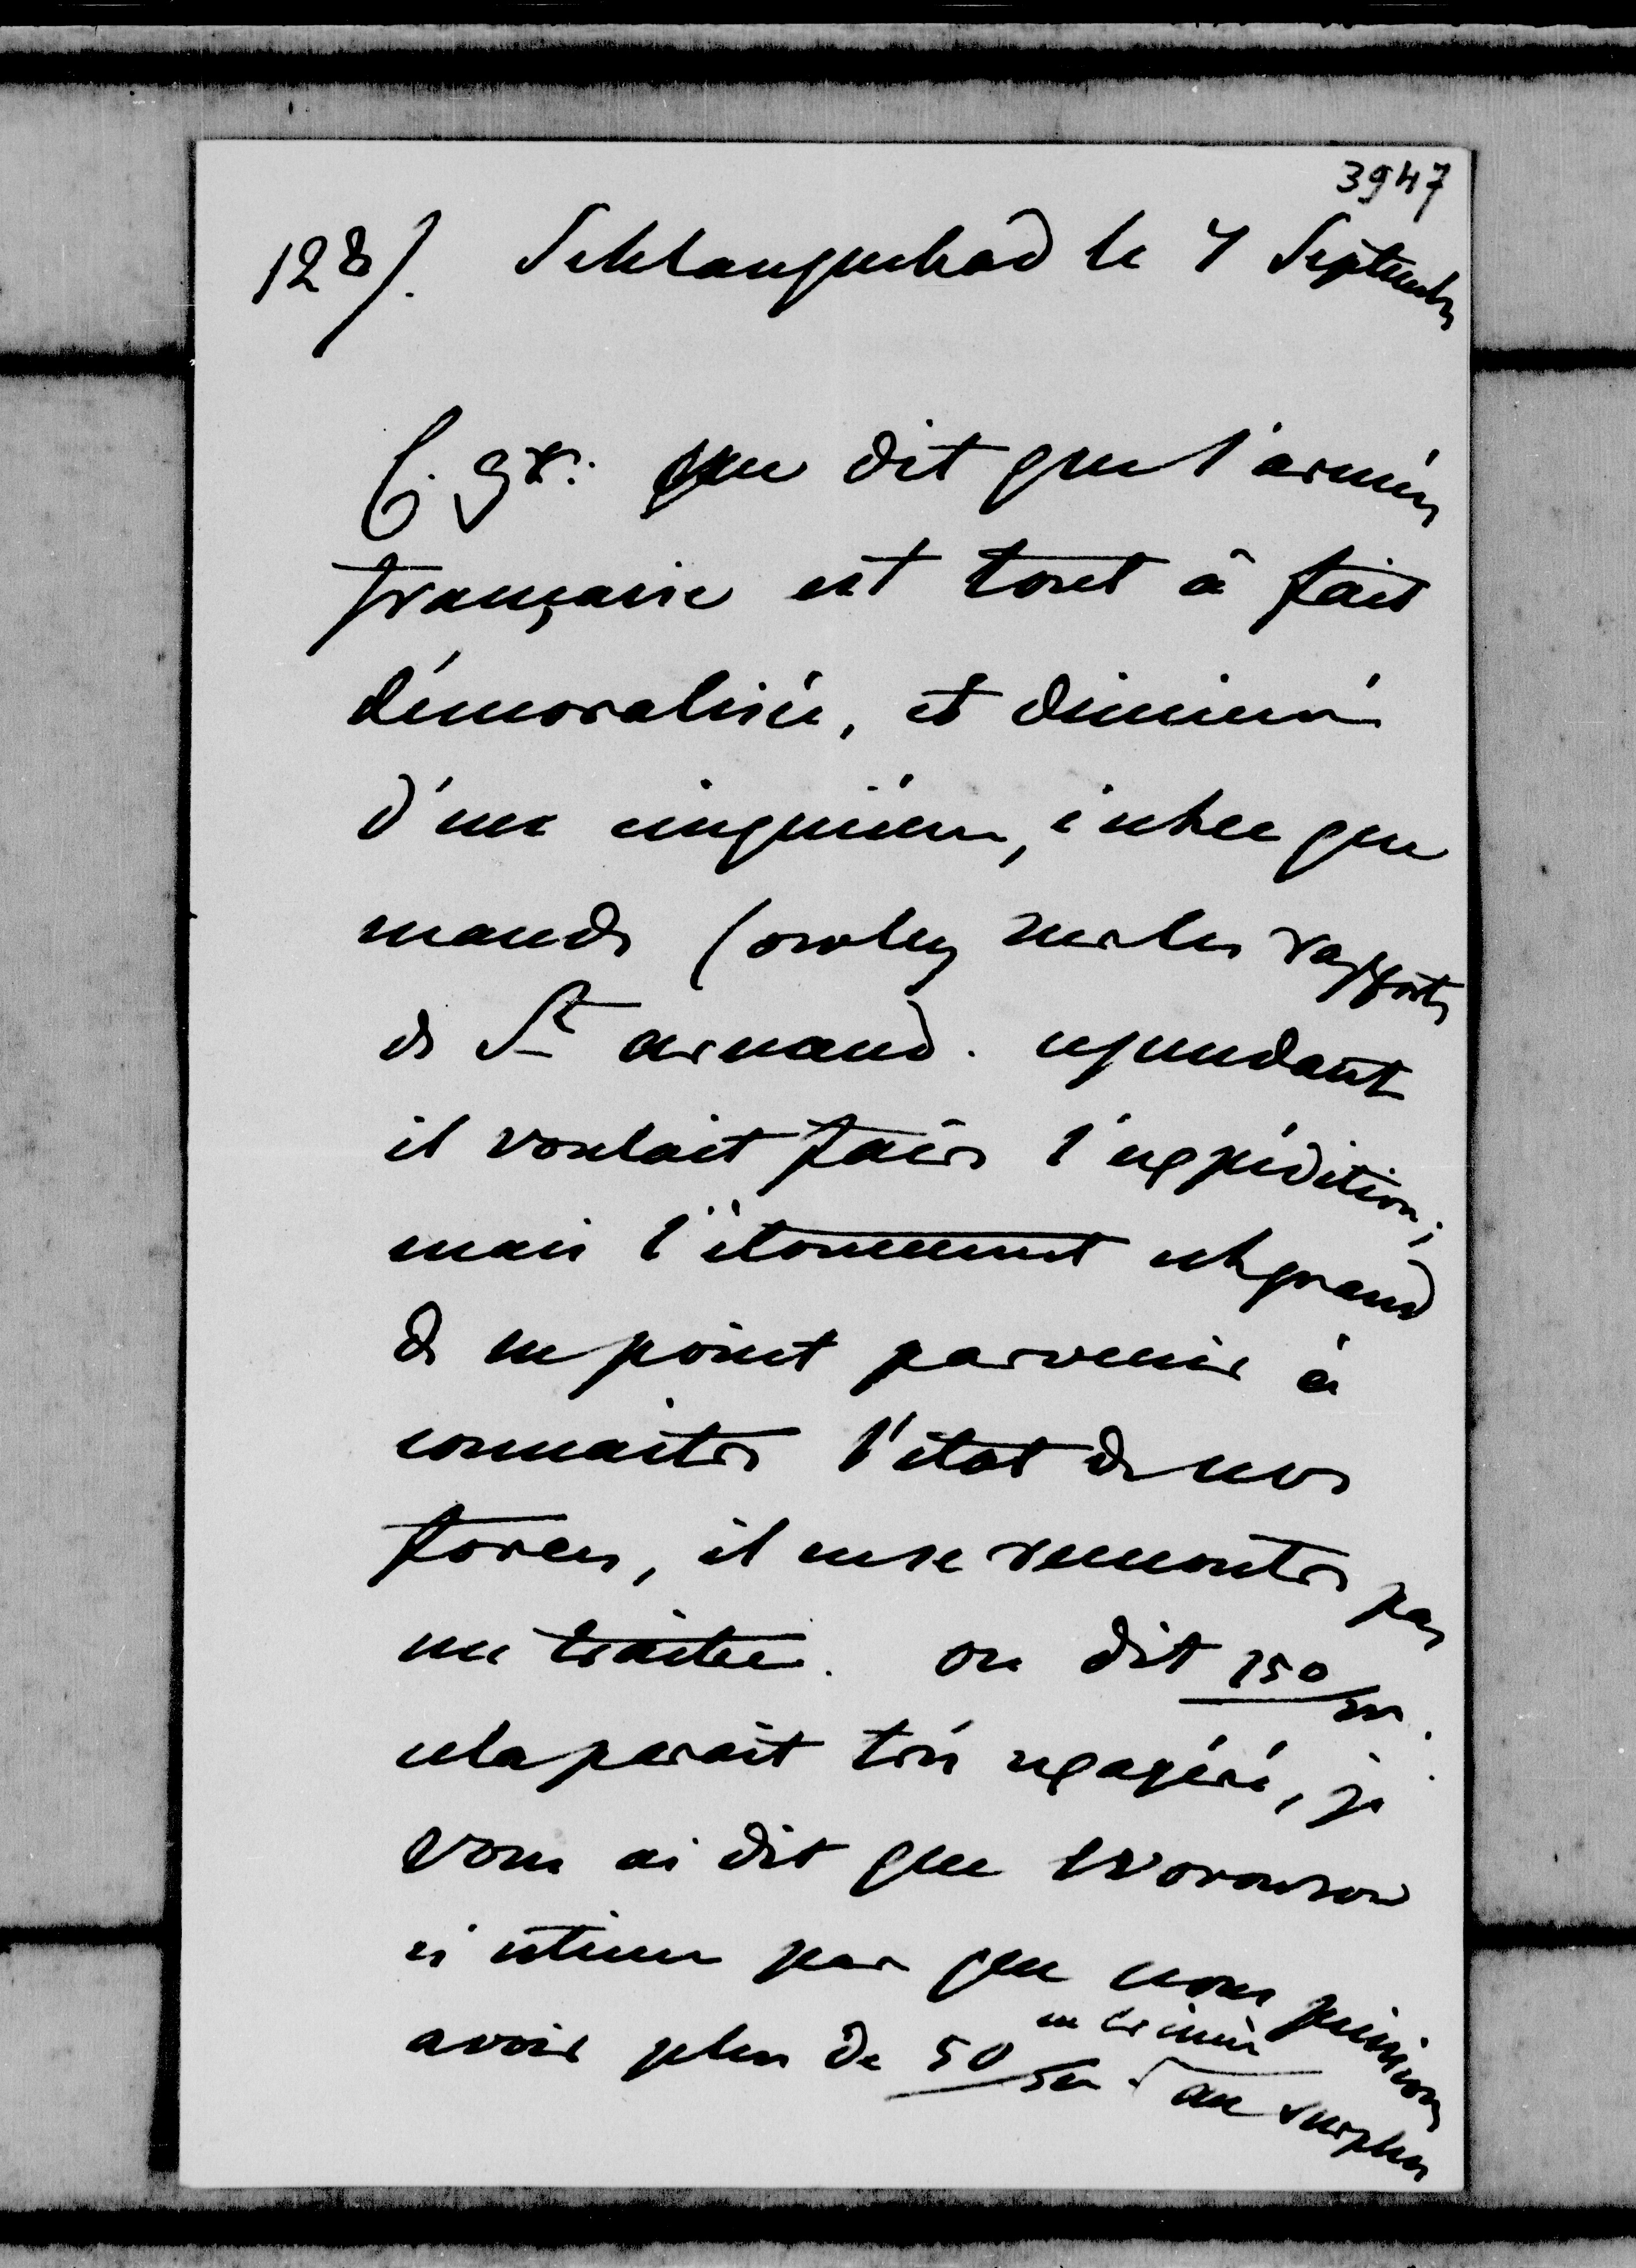 3947
128/. Schlangenbad le 7 Septembre
que dit que l'armée
française est tout à fait
démoralisée, et diminué
d'un cinquième, c'est ce que
mande Cowley sur les rapports
de St Arnaud. cependant
il voulait faire l'expédition;
mais l'étonnement est grand
de ne point parvenir à
connaitre l'état de nos
forces, il ne se rencontre pas
un traitre. on dit 150/m.
cela parait très exagéré, je
vous ai dit que Woronzow
n'estime pas que nous puissions
avoir plus de 50/m en Crimée. au surplus